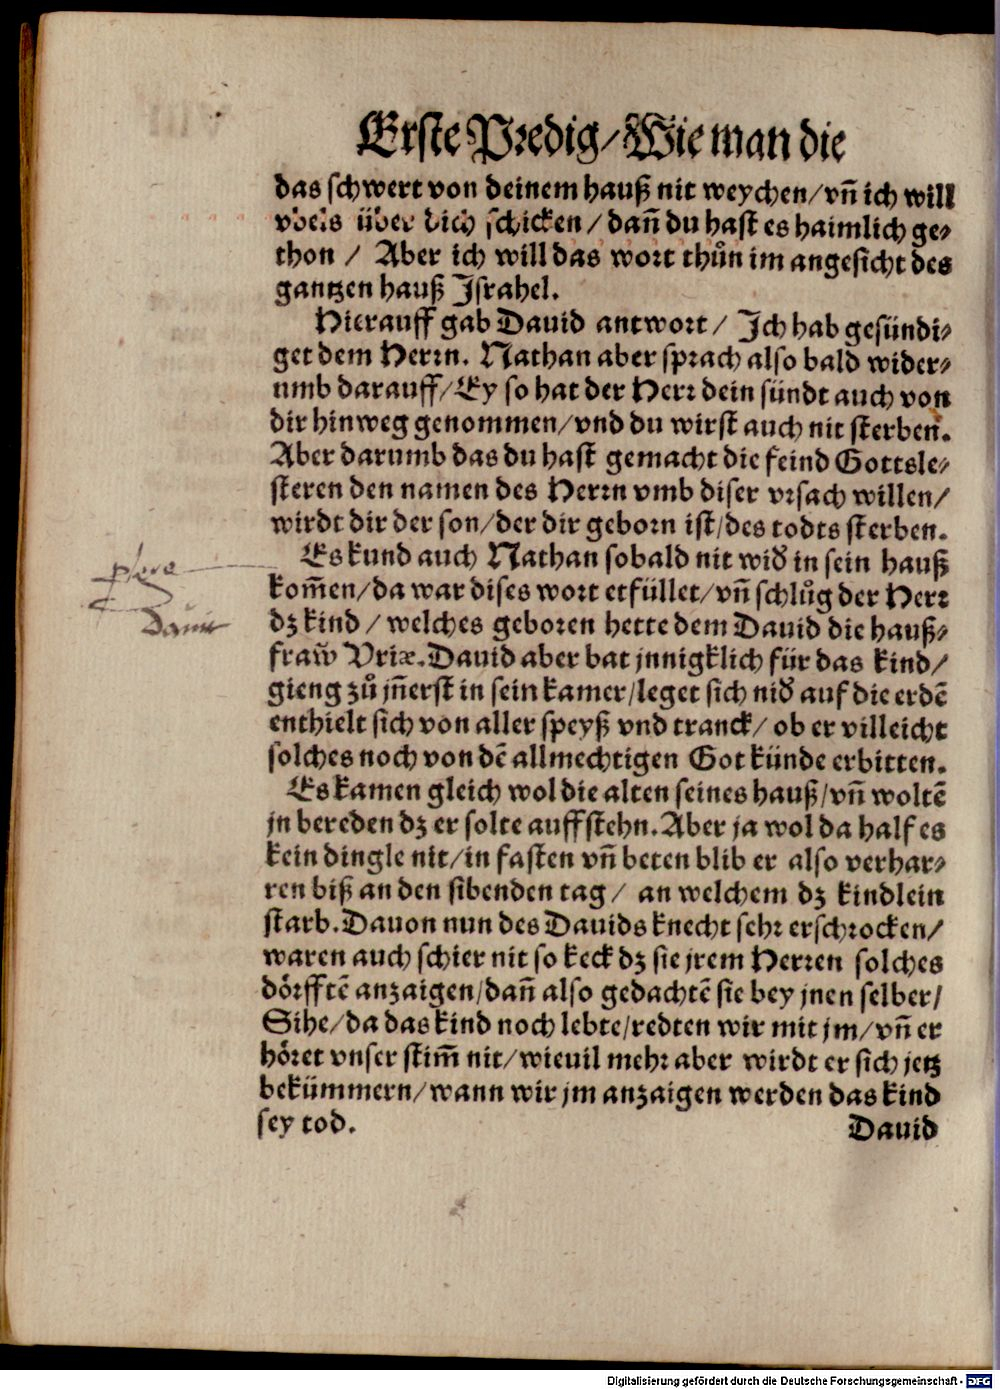 Erste Predig/ Wie man die
das schwert von deinem hauß nit weychen/ vñ ich will
vbels über dich schicken/ dañ du hast es haimlich ge⸗
thon/ Aber ich will das wort thůn im angesicht des
gantzen hauß Israhel.
Hierauff gab Dauid antwort/ Ich hab gesündi⸗
get dem Herrn. Nathan aber sprach also bald wider⸗
umb darauff/ Ey so hat der Herr dein sündt auch von
dir hinweg genommen/ vnd du wirst auch nit sterben.
Aber darumb das du hast gemacht die feind Gottsle⸗
steren den namen des Herrn vmb diser vrsach willen/
wirdt dir der son/ der dir geborn ist/ des todts sterben.
Es kund auch Nathan sobald nit wid̃ in sein hauß
kom̃en/ da war dises wort erfüllet/ vñ schlůg der Herr
dz kind/ welches geboren hette dem Dauid die hauß⸗
fraw̃ Vriæ. Dauid aber bat jnnigklich für das kind/
gieng zů jñerst in sein kamer/ leget sich nid̃ auf die erdẽ
enthielt sich von aller speyß vnd tranck/ ob er villeicht
solches noch von dẽ allmechtigen Got künde erbitten.
Es kamen gleich wol die alten seines hauß/ vñ woltẽ
jn bereden dz er solte auffstehn. Aber ja wol da half es
kein dingle nit/ in fasten vñ beten blib er also verhar⸗
ren biß an den sibenden tag/ an welchem dz kindlein
starb. Dauon nun des Dauids knecht sehr erschrocken/
waren auch schier nit so keck dz sie jrem Herren solches
dörfftẽ anzaigen/ dañ also gedachtẽ sie bey jnen selber/
Sihe/ da das kind noch lebte/ redten wir mit jm/ vñ er
höret vnser stim̃ nit/ wieuil mehr aber wirdt er sich jetz
bekümmern/ wann wir jm anzaigen werden das kind
sey tod.
Dauid
Digitalisierung gefördert durch die Deutsche Forschungsgemeinschaft - DFG